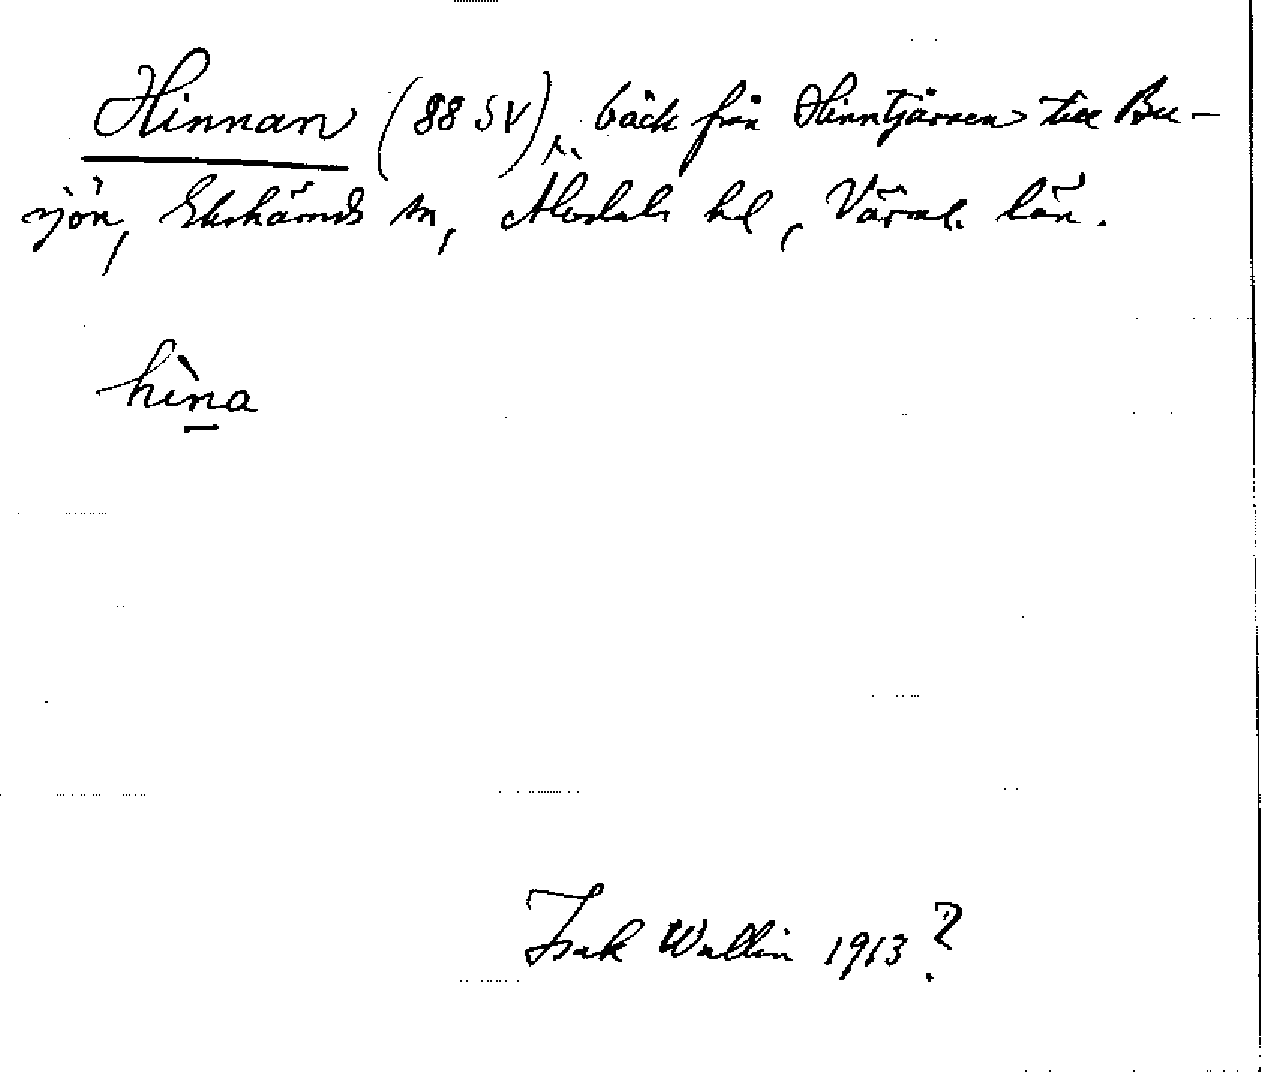 Hinnan (88 SV), bäck från Hinntjärnen till Bu-
sjön, Ekshärads sn, Älvdals hd, Värml. län.
hìna
Isak Wallin 1913?